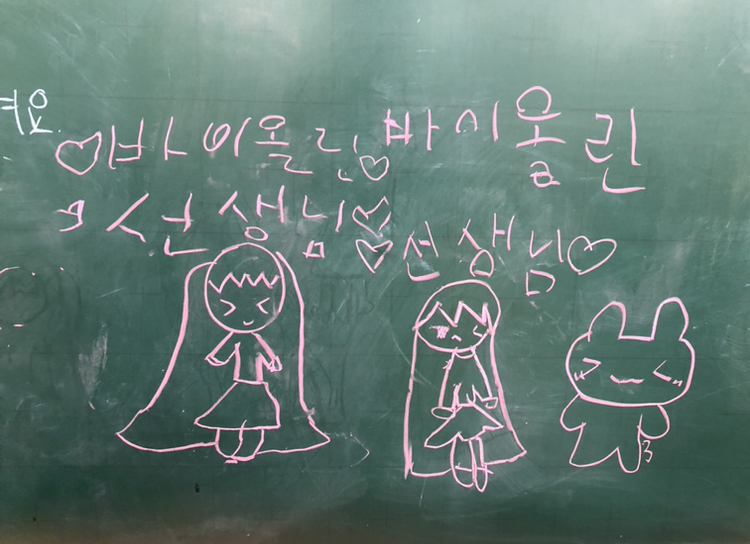 여요.
♡바이올린♡ 바이올린
선생님♡ ♡선생님♡